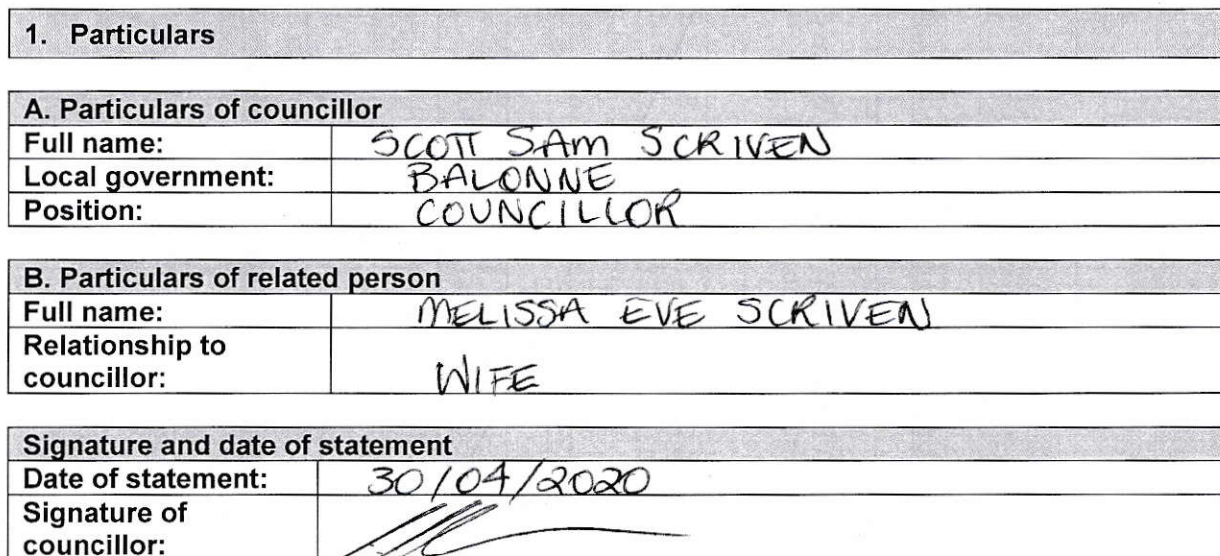 1. Particulars
A. Particulars of councillor
Full name: SCOTT SAM SCRIVEN
Local government: BALONNE
Position: COUNCILLOR
B. Particulars of related person
Full name: MELISSA EVE SCRIVEN
Relationship to
councillor: WIFE
Signature and date of statement
Date of statement: 30/04/2020
Signature of
councillor: